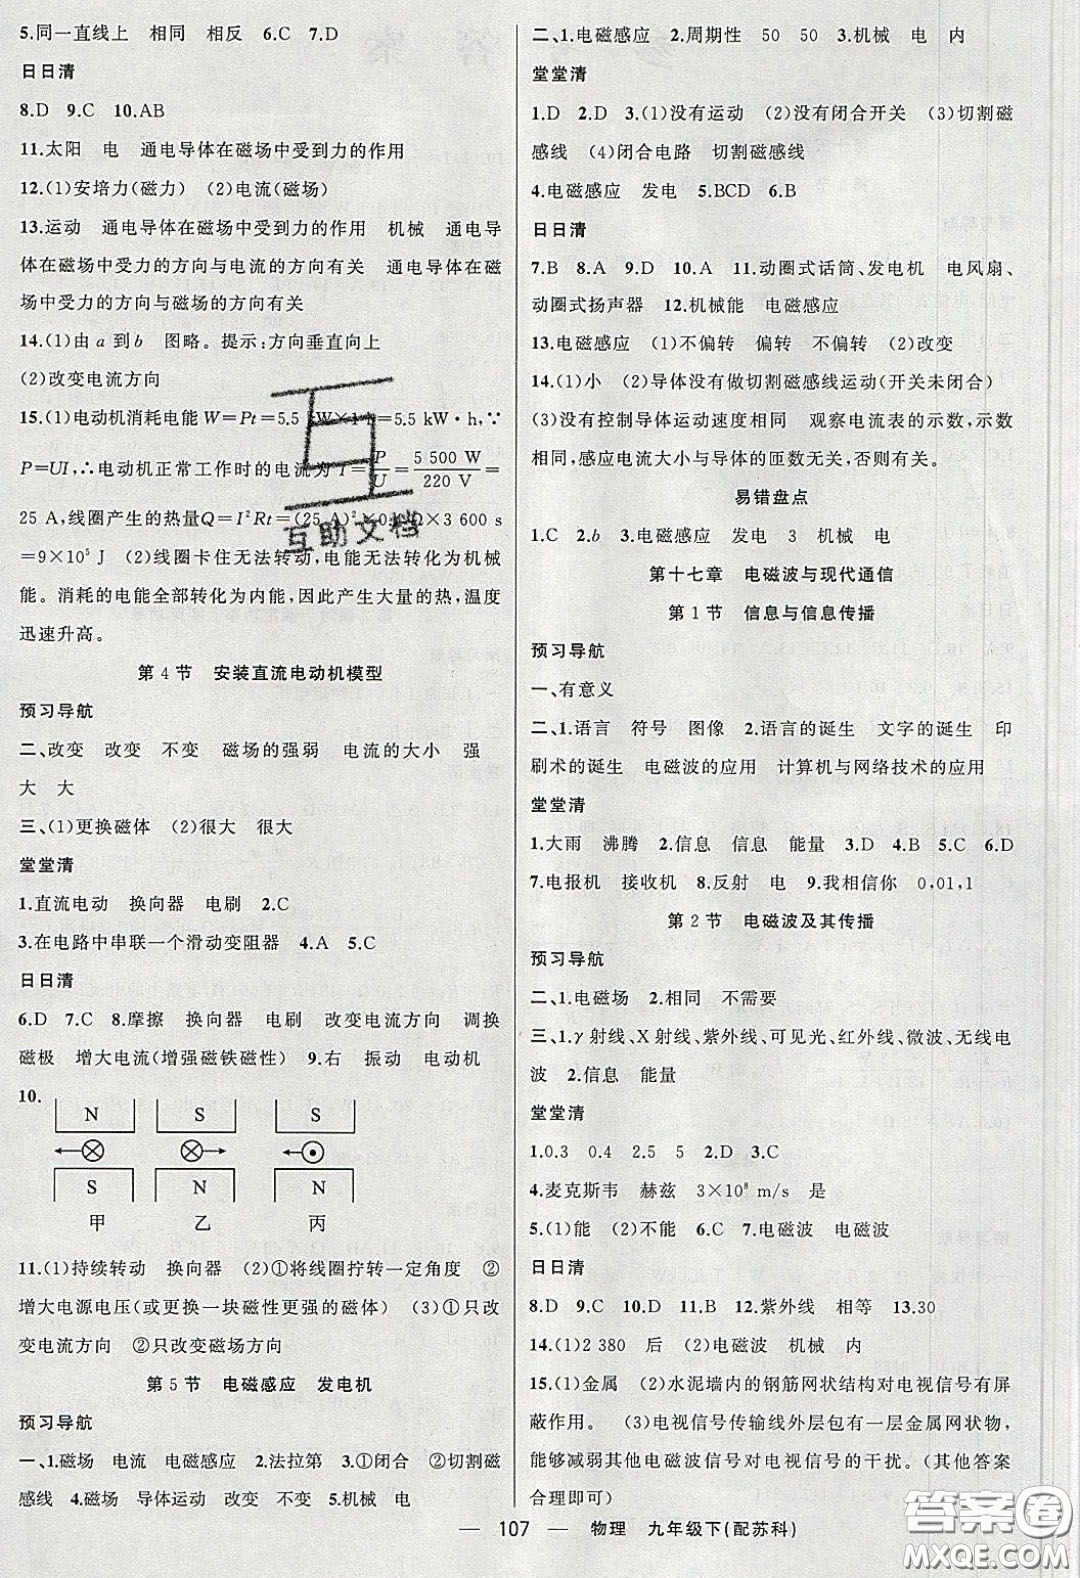 5.同一直线上 相同 相反 6.C 7.D
日日清
8.D 9.C 10.AB
11.太阳 电 通电导体在磁场中受到力的作用
12.(1)安培力(磁力) (2)电流(磁场)
13.运动 通电导体在磁场中受到力的作用 机械 通电导
体在磁场中受力的方向与电流的方向有关 通电导体在磁
场中受力的方向与磁场的方向有关
14.(1)由a到b 图略。提示:方向垂直向上
(2)改变电流方向
15.(1)电动机消耗电能W=Pt=5.5 kW×1 h=5.5 kW·h,∵
P=UI,∴电动机正常工作时的电流为I=P/U=5 500 W/220 V=
25 A,线圈产生的热量Q=I²Rt=(25 A)²×0.4 Ω×3 600 s
=9×10⁵ J (2)线圈卡住无法转动,电能无法转化为机械
能。消耗的电能全部转化为内能,因此产生大量的热,温度
迅速升高。
第4节 安装直流电动机模型
预习导航
二、改变 改变 不变 磁场的强弱 电流的大小 强
大 大
三、(1)更换磁体 (2)很大 很大
堂堂清
1.直流电动 换向器 电刷 2.C
3.在电路中串联一个滑动变阻器 4.A 5.C
日日清
6.D 7.C 8.摩擦 换向器 电刷 改变电流方向 调换
磁极 增大电流(增强磁铁磁性) 9.右 振动 电动机
10.
N S S
S N N
甲 乙 丙
11.(1)持续转动 换向器 (2)①将线圈拧转一定角度 ②
增大电源电压(或更换一块磁性更强的磁体) (3)①只改
变电流方向 ②只改变磁场方向
第5节 电磁感应 发电机
预习导航
一、1.磁场 电流 电磁感应 2.法拉第 3.①闭合 ②切割磁
感线 4.磁场 导体运动 改变 不变 5.机械 电
二、1.电磁感应 2.周期性 50 50 3.机械 电 内
堂堂清
1.D 2.D 3.(1)没有运动 (2)没有闭合开关 (3)切割磁
感线 (4)闭合电路 切割磁感线
4.电磁感应 发电 5.BCD 6.B
日日清
7.B 8.A 9.D 10.A 11.动圈式话筒、发电机 电风扇、
动圈式扬声器 12.机械能 电磁感应
13.电磁感应 (1)不偏转 偏转 不偏转 (2)改变
14.(1)小 (2)导体没有做切割磁感线运动(开关未闭合)
(3)没有控制导体运动速度相同 观察电流表的示数,示数
相同,感应电流大小与导体的匝数无关,否则有关。
易错盘点
1.C 2.b 3.电磁感应 发电 3 机械 电
第十七章 电磁波与现代通信
第1节 信息与信息传播
预习导航
一、有意义
二、1.语言 符号 图像 2.语言的诞生 文字的诞生 印
刷术的诞生 电磁波的应用 计算机与网络技术的应用
堂堂清
1.大雨 沸腾 2.信息 信息 能量 3.D 4.B 5.C 6.D
7.电报机 接收机 8.反射 电 9.我相信你 0,01,1
第2节 电磁波及其传播
预习导航
二、1.电磁场 2.相同 不需要
三、1.γ射线、X射线、紫外线、可见光、红外线、微波、无线电
波 2.信息 能量
堂堂清
1.0.3 0.4 2.5 5 2.D 3.C
4.麦克斯韦 赫兹 3×10⁸ m/s 是
5.(1)能 (2)不能 6.C 7.电磁波 电磁波
日日清
8.D 9.C 10.D 11.B 12.紫外线 相等 13.30
14.(1)2 380 后 (2)电磁波 机械 内
15.(1)金属 (2)水泥墙内的钢筋网状结构对电视信号有屏
蔽作用。 (3)电视信号传输线外层包有一层金属网状物,
能够减弱其他电磁波信号对电视信号的干扰。(其他答案
合理即可)
— 107 — 物理 九年级下(配苏科)
互助文档
答案圈
MXQE.COM